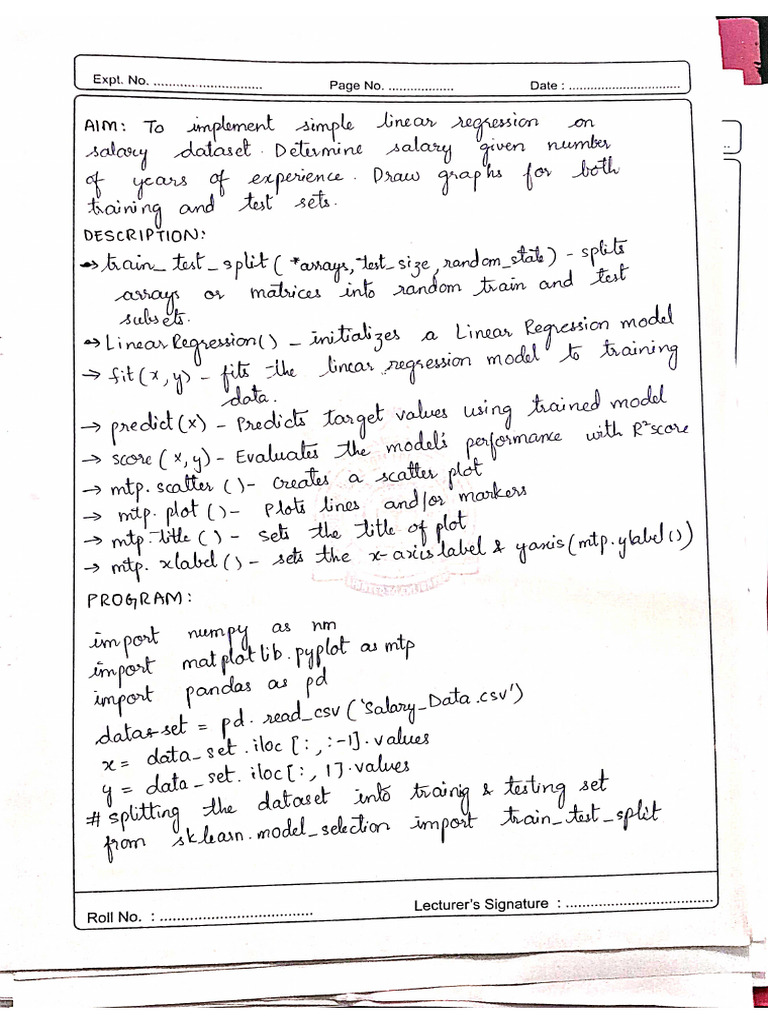 Expt. No. ..............................
Page No. ..................
Date : ...............................
AIM: To implement simple linear regression on
salary dataset. Determine salary given number
of years of experience. Draw graphs for both
training and test sets.
DESCRIPTION:
→ train_test_split(*arrays, test_size, random_state) - splits
arrays or matrices into random train and test
subsets.
→ LinearRegression() - initializes a Linear Regression model
→ fit(x,y) - fits the linear regression model to training
data.
→ predict(x) - Predicts target values using trained model
→ score(x,y) - Evaluates the model's performance with R² score
→ mtp.scatter() - Creates a scatter plot
→ mtp.plot() - Plots lines and/or markers
→ mtp.title() - Sets the title of plot
→ mtp.xlabel() - sets the x-axis label & yaxis(mtp.ylabel())
PROGRAM:
import numpy as nm
import matplotlib.pyplot as mtp
import pandas as pd
data_set = pd.read_csv('Salary_Data.csv')
x = data_set.iloc[:,:-1].values
y = data_set.iloc[:,1].values
# splitting the dataset into trainig & testing set
from sklearn.model_selection import train_test_split
Roll No. : ....................................
Lecturer's Signature : ..................................